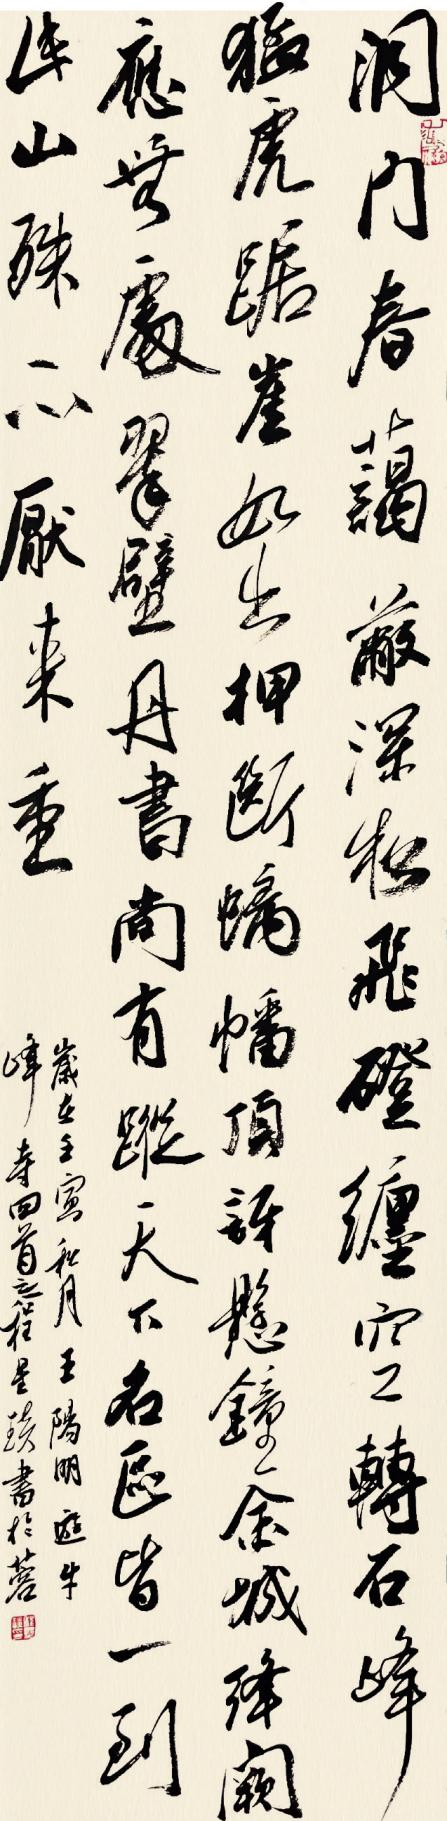 洞門春藹蔽深松飛磴纏空轉石峰
猛虎踞崖如出柙斷螭蟠頂訝懸鐘金城絳闕
應無處翠壁丹書尚有蹤天下名區皆一到
此山殊不厭來重
歲在壬寅秋月王陽明遊牛
峰寺四首之程星書於蓉